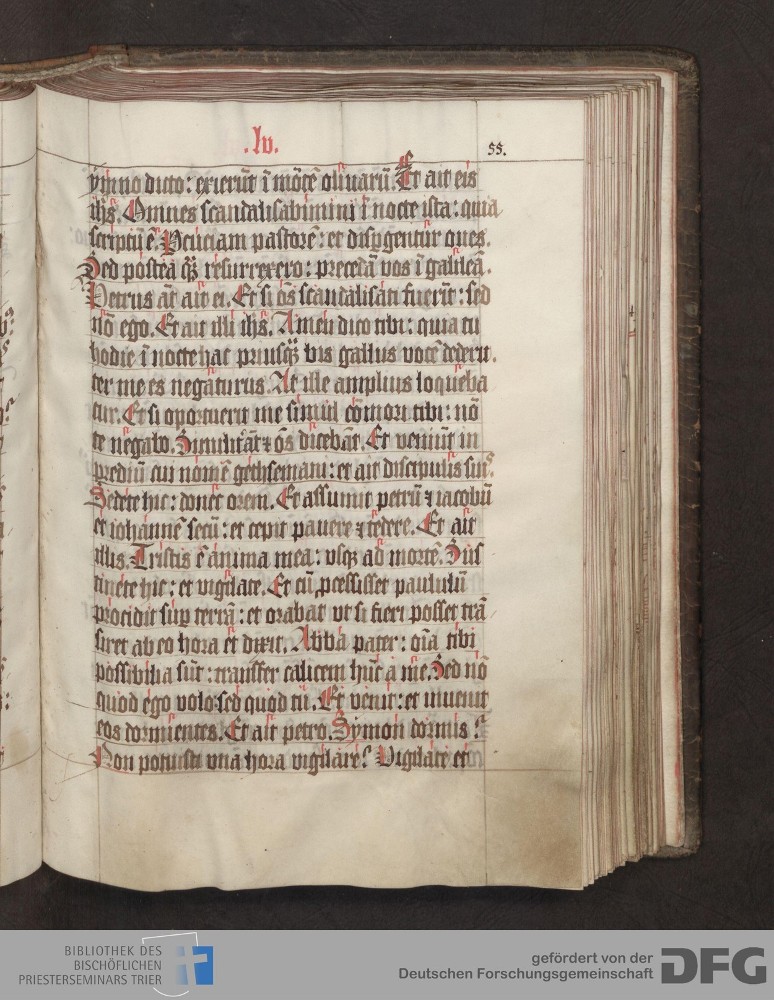 .lv.
55.
ẏmno dicto: exierūt ī mōtē oliuarū. Et ait eis
ihs̄. Omnes scandalisabimini ī nocte ista: quia
scriptū ē. Percuciam pastorē: et dispgentur oues.
Sed posteā qȝ resurrexero: precedā vos ī galileā.
Petrus āt ait ei. Et si ōs scandalisati fuerīt: sed
nō ego. Et ait illi ihs̄. Amen dico tibi: quia tu
hodie ī nocte hac priusqȝ bis gallus vocē dederit.
ter me es negaturus. At ille amplius loqueba
tur. Et si oportuerit me simul cōmori tibi: nō
te negabo. Similit āt ⁊ ōs dicebāt. Et veniūt in
prediū cui nomē gethsemani: et ait discipulis suis.
Sedete hic: donec orem. Et assumit petrū ⁊ iacobū
et iohannē secū: et cepit pauere ⁊ tedere. Et ait
illis. Tristis ē anima mea: vsqȝ ad mortē. Sus
tinete hic: et vigilate. Et cū pcessisset paululū
procidit sup terrā: et orabat vt si fieri posset trā
siret ab eo hora et dixit. Abba pater: oīa tibi
possibilia sūt: transfer calicem hūc a me. Sed nō
quod ego volo: sed quod tu. Et venit: et inuenit
eos dormientes. Et ait petro. Symon dormis?
Non potuisti vna hora vigilare? Vigilate et
BIBLIOTHEK DES
BISCHÖFLICHEN
PRIESTERSEMINARS TRIER
gefördert von der
Deutschen Forschungsgemeinschaft
DFG